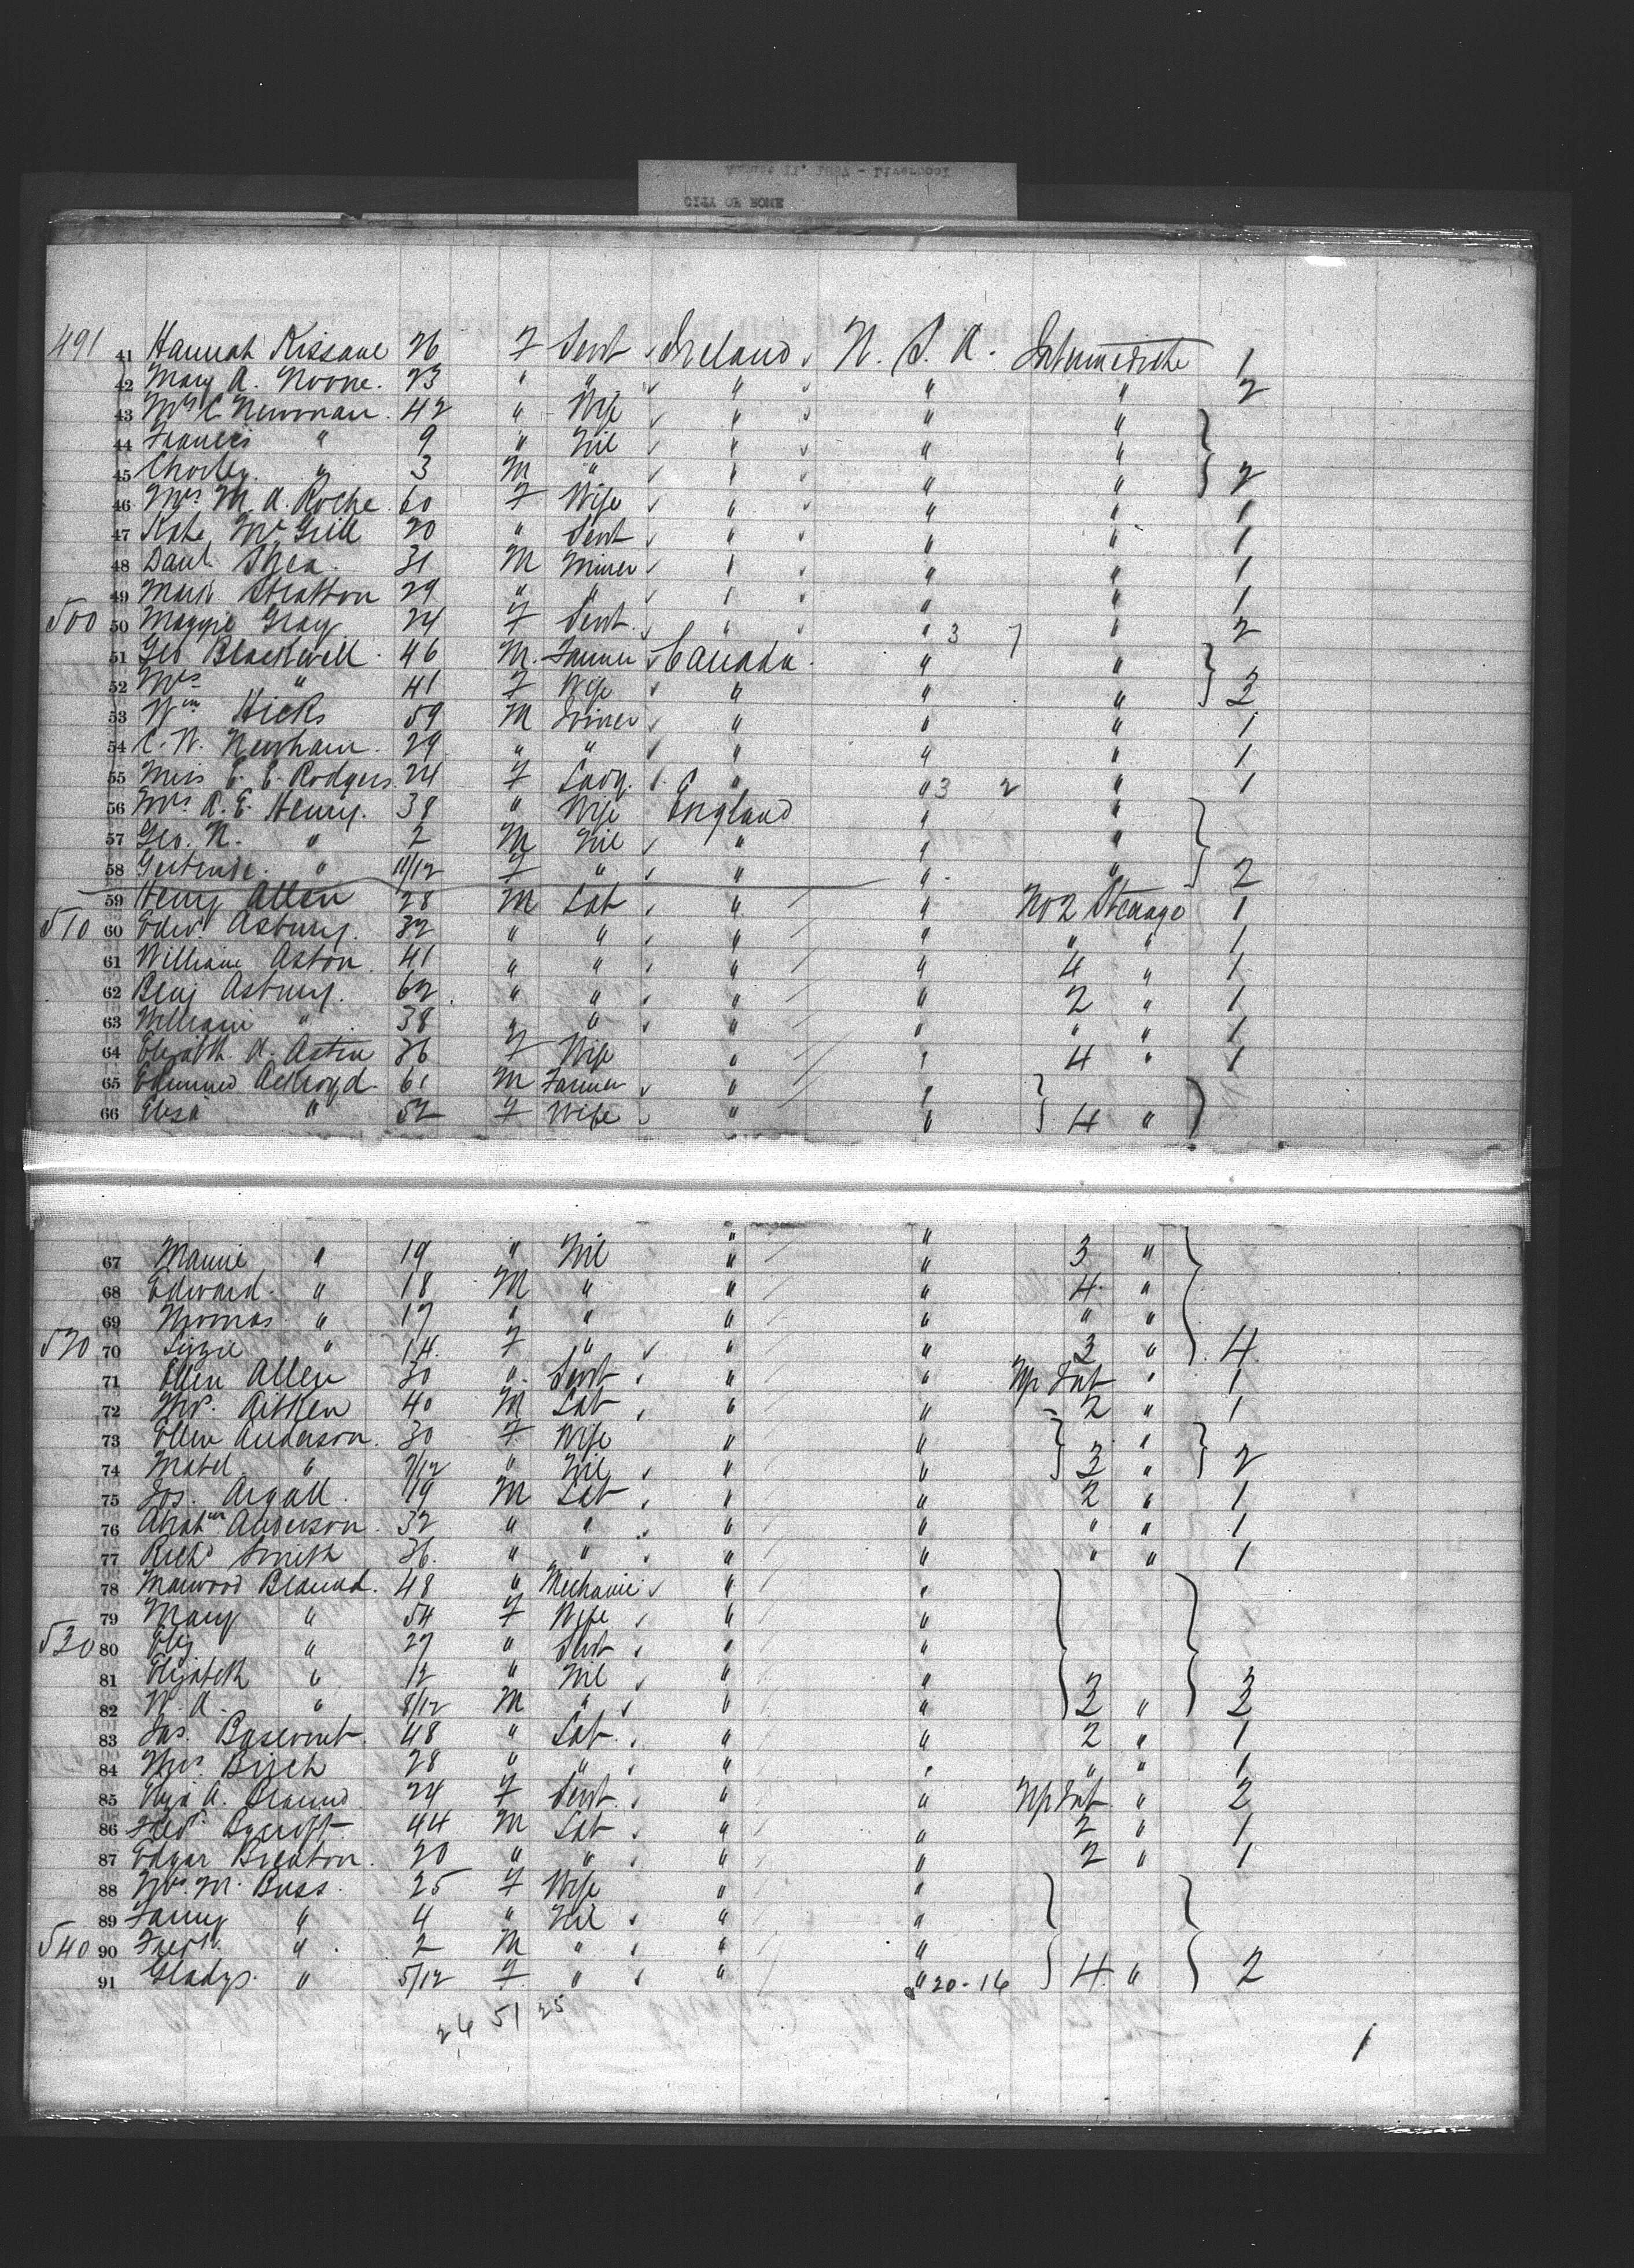 August 11, 1887 - Liverpool
CITY OF ROME
491 41 Hannah Kissane 26 F Servt Ireland U. S. A. Intermediate 1
42 Mary A. Noone 23 " " " " " 2
43 Mrs C Newman 42 " Wife " " "
44 Francis " 9 " Nil " " "
45 Charley " 3 M " " " " 2
46 Mrs M. A. Roche 60 F Wife " " " 1
47 Kate McGill 20 " Servt " " " 1
48 Danl. Shea 31 M Miner " " " 1
49 Stratton 29 " " " " " 1
500 50 Maggie Gray 24 F Servt " " 3 7 " 2
51 Geo Blackwell 46 M. Farmer Canada " "
52 Mrs " 41 F Wife " " " 2
53 Wm Hicks 59 M " " " 1
54 C. W. Newham 29 " " " " " 1
55 Miss E. E. Rodgers 24 F Lady " " 3 2 " 1
56 Mrs R. E. Henry 38 " Wife England " "
57 Geo. N. " 2 M Nil " " "
58 Gertrude " 11/12 F " " " " 2
59 Henry Allen 28 M Lab " " No 2 Steerage 1
510 60 Edwd. Asbury 32 " " " " " " 1
61 William Aston 41 " " " " 4 " 1
62 Benj Asbury 62 " " " " 2 " 1
63 William " 38 " " " " " " 1
64 Elizabth. A. Aston 36 F Wife " " 4 " 1
65 Edmund Ackroyd 61 M Farmer " "
66 Eliza " 52 F Wife " " 4 "
67 " 19 " Nil " " 3 "
68 Edward " 18 M " " " 4 "
69 Thomas " 17 " " " " " "
520 70 Lizzie " 14 F " " " 3 " 4
71 Ellen Allen 30 " Servt " " Up Int " 1
72 Aitken 40 M Lab " " 2 " 1
73 Ellen Anderson 30 F Wife " " "
74 Mabel " 7/12 " Nil " " 3 " 2
75 Jos. Argall 19 M Lab " " 2 " 1
76 Abrahm Anderson 32 " " " " " " 1
77 Richd Smith 36 " " " " " " 1
78 Marwood 48 " Mechanic " "
79 Mary " 54 F Wife " "
530 80 Eliz " 27 " Servt " "
81 Elizabeth " 12 " Nil " "
82 W. A. " 8/12 M " " " 3 " 3
83 Jas. 48 " Lab " " 2 " 1
84 Birch 28 " " " " " " 1
85 Eliza A. 24 F Servt " " Up Int " 2
86 Fredk. 44 M Lab " " 2 " 1
87 Edgar 20 " " " " 2 " 1
88 Mrs. M. Buss 25 F Wife " "
89 Fanny " 4 " Nil " "
540 90 Fredk. " 2 M " " "
91 Gladys " 5/12 F " " " 20-16 4 " 2
26 51 25
1